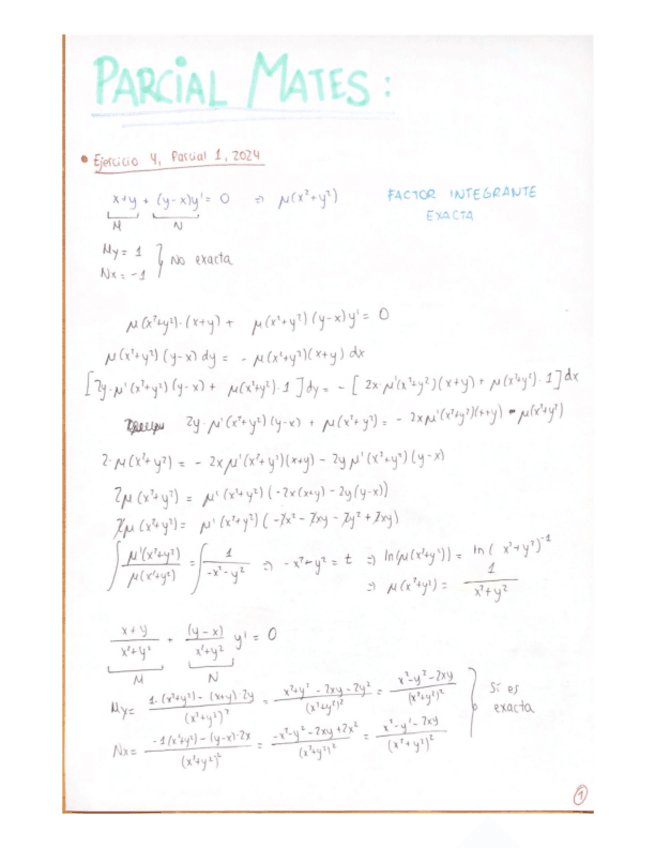 PARCIAL MATES:
• Ejercicio 4, Parcial 1, 2024
x+y + (y-x)y' = 0 ⇒ μ(x²+y²) FACTOR INTEGRANTE
M N EXACTA
My = 1
Nx = -1 } No exacta
μ(x²+y²)·(x+y) + μ(x²+y²)(y-x)y' = 0
μ(x²+y²)(y-x) dy = - μ(x²+y²)(x+y) dx
[2y·μ'(x²+y²)(y-x) + μ(x²+y²)·1] dy = - [2x·μ'(x²+y²)(x+y) + μ(x²+y²)·1] dx
2y·μ'(x²+y²)(y-x) + μ(x²+y²) = - 2xμ'(x²+y²)(x+y) - μ(x²+y²)
2·μ(x²+y²) = - 2xμ'(x²+y²)(x+y) - 2yμ'(x²+y²)(y-x)
2μ(x²+y²) = μ'(x²+y²)(-2x(x+y) - 2y(y-x))
2μ(x²+y²) = μ'(x²+y²)(-2x² - 2xy - 2y² + 2xy)
∫ μ'(x²+y²)/μ(x²+y²) = ∫ 1/(-x²-y²) ⇒ -x²-y² = t ⇒ ln(μ(x²+y²)) = ln(x²+y²)⁻¹
⇒ μ(x²+y²) = 1/(x²+y²)
(x+y)/(x²+y²) + (y-x)/(x²+y²) y' = 0
M N
My = (1·(x²+y²) - (x+y)·2y)/(x²+y²)² = (x²+y² - 2xy - 2y²)/(x²+y²)² = (x²-y²-2xy)/(x²+y²)²
Nx = (-1(x²+y²) - (y-x)·2x)/(x²+y²)² = (-x²-y² - 2xy + 2x²)/(x²+y²)² = (x²-y²-2xy)/(x²+y²)² } Sí es exacta
1